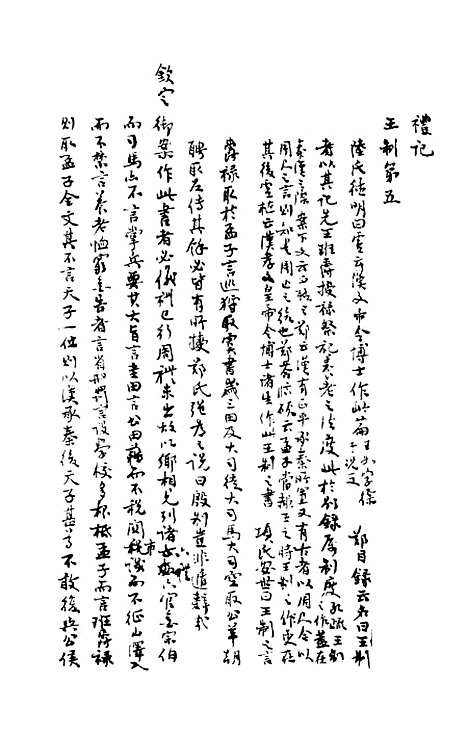 禮記
王制第五
陸氏德明曰盧云漢文帝令博士作此篇 鄭目錄云名曰王制
者以其記先王班爵授祿祭祀養老之法度此於別錄屬制度孔疏王制之作蓋在
秦漢之際案下文云有正聽之鄭云漢有正平承秦所置又有古者以周尺今以
周尺之言則知是周亡之後也鄭答臨碩云孟子當赧王之時王制之作更在
其後盧植云漢孝文皇帝令博士諸生作此王制之書 項氏安世曰王制之言
爵祿取於孟子言巡狩取虞書歲三田及大司徒大司馬大司空取公羊朝
聘取左傳其餘必皆有所據鄭氏強為之說曰殷制豈非遁辭哉
欽定
御案作此書者必儀禮已行周禮未出故以鄉相見列諸六禮 六官無宗伯
而司馬亦不言掌兵要其大旨言圭田言公田藉而不稅關市譏而不征山澤入
而不禁言養老恤窮無告者言省刑罰言設學校多根柢孟子而言班爵祿
則取孟子全文其不言天子一位則以漢承秦後天子甚尊不敢復與公侯